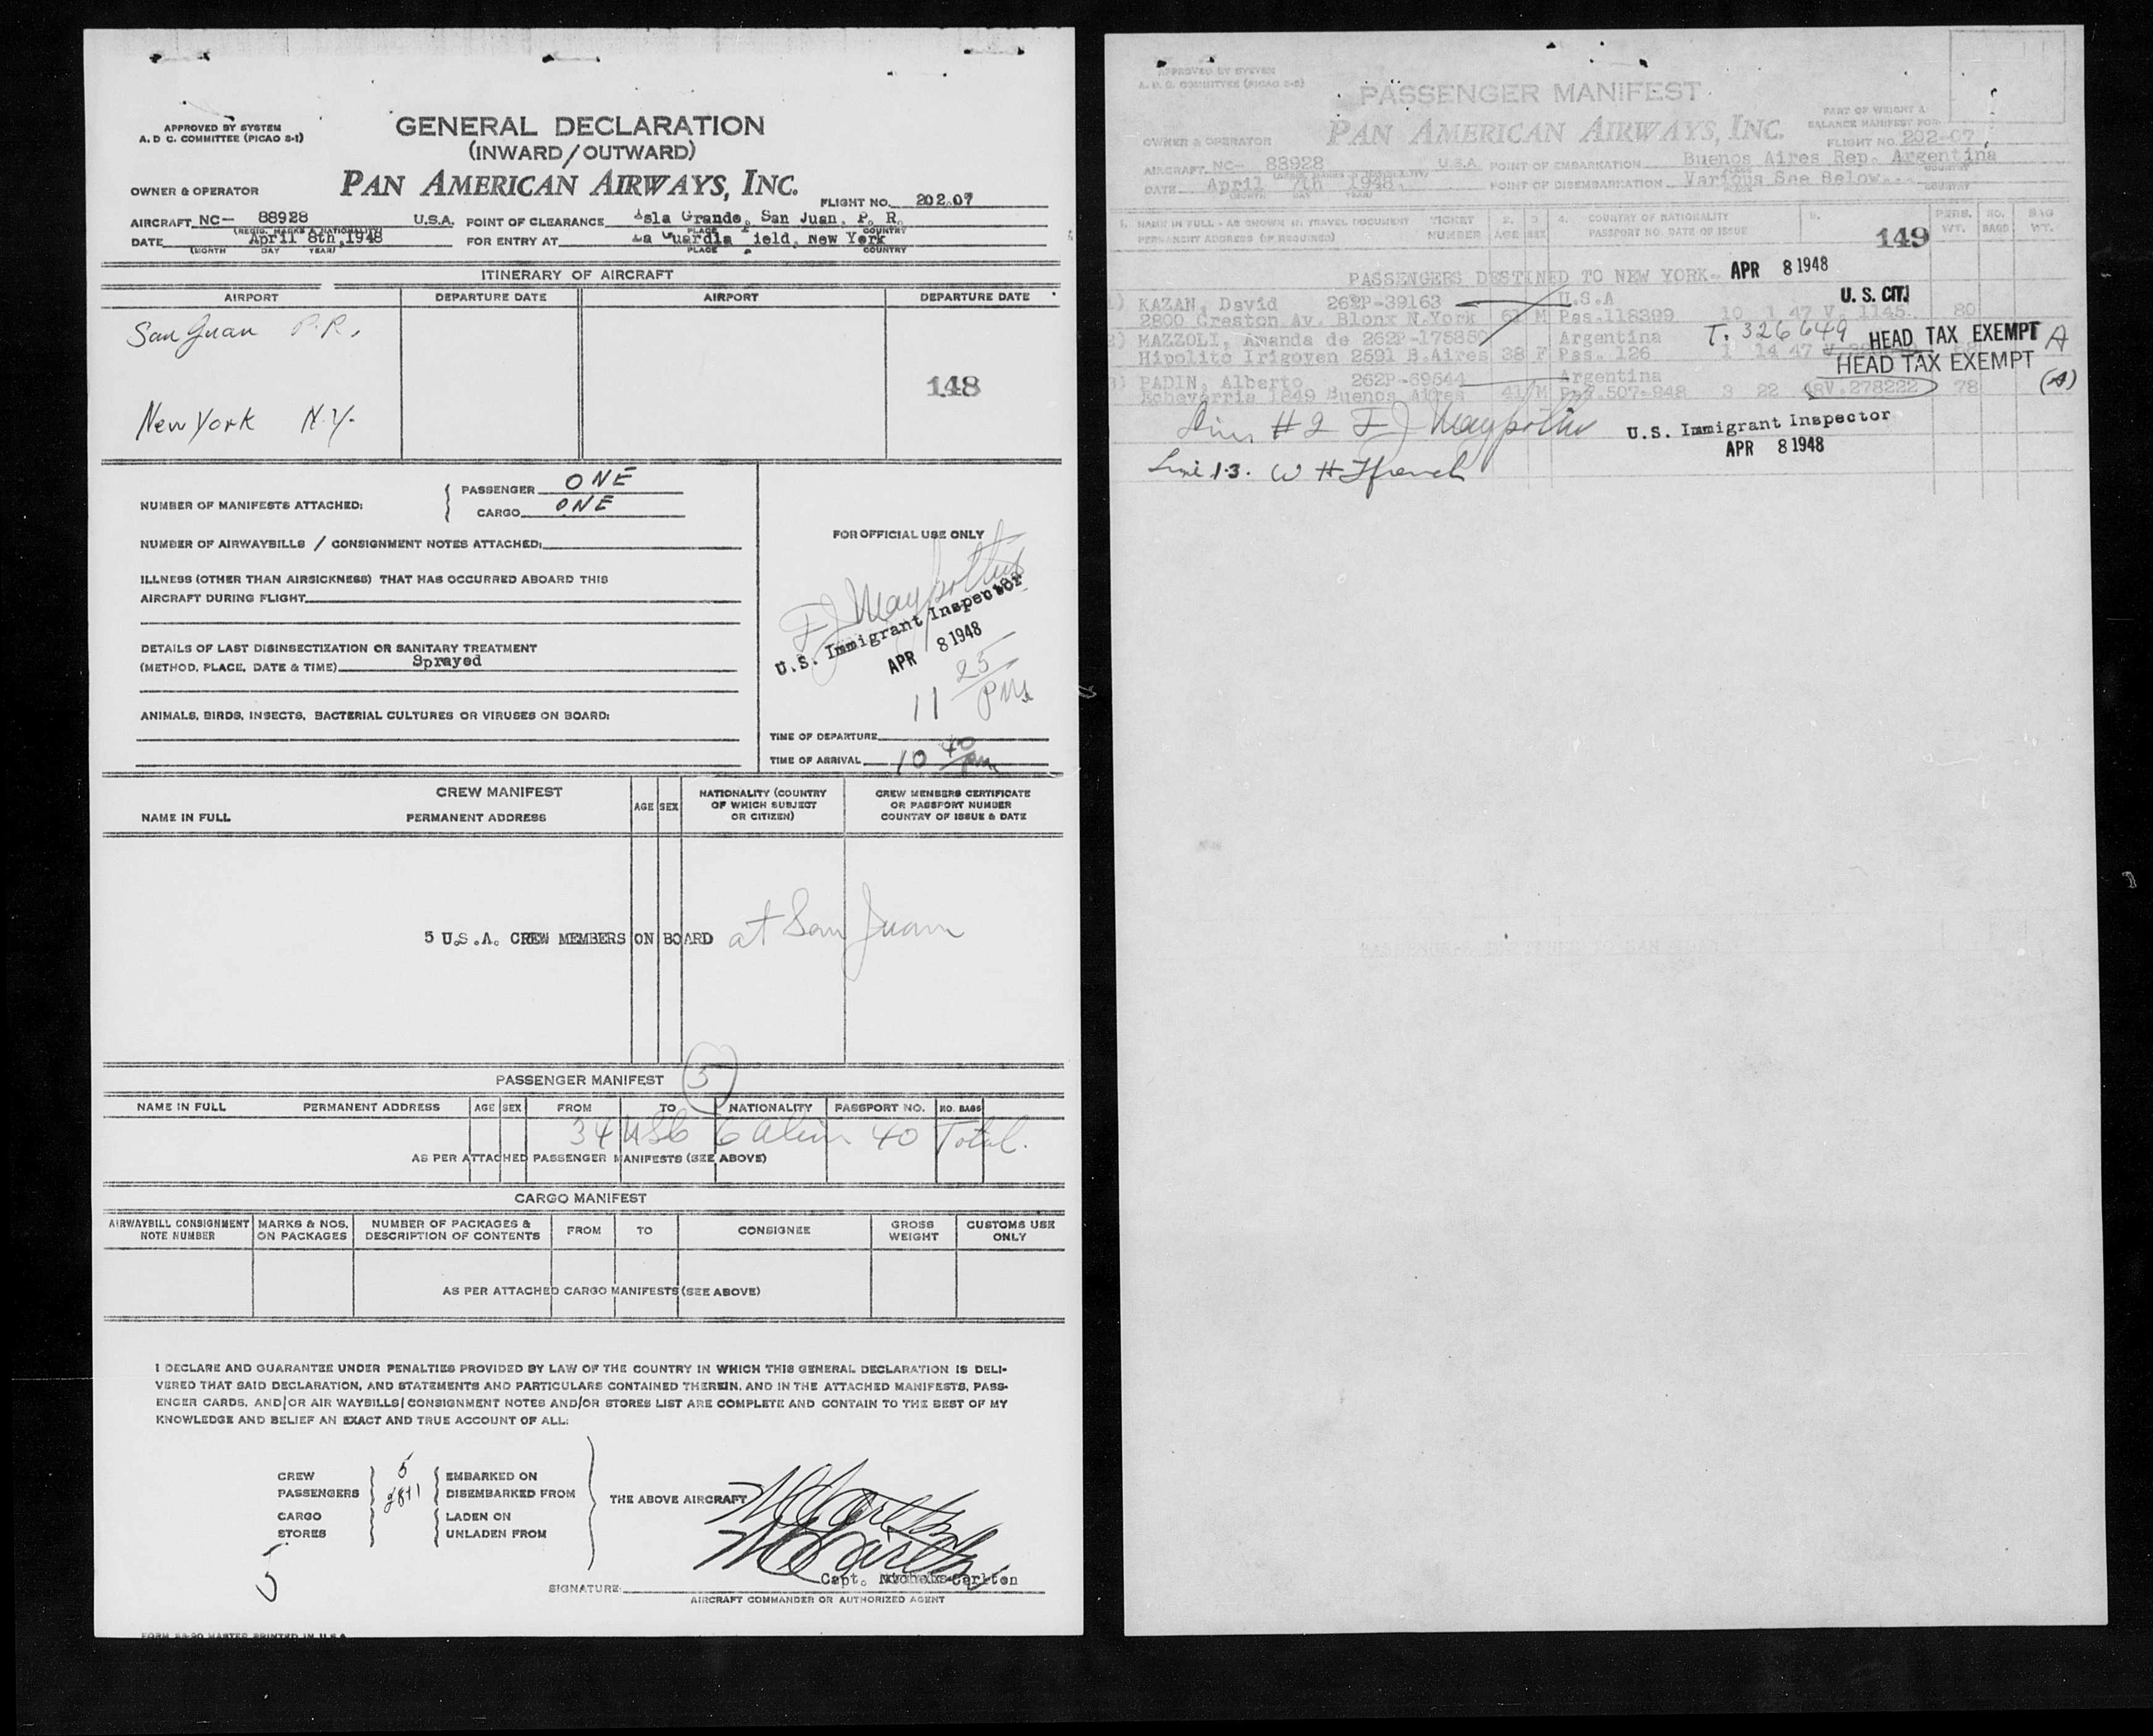 APPROVED BY SYSTEM
A. D C. COMMITTEE (PICAO 2-1)
GENERAL DECLARATION
(INWARD/OUTWARD)
OWNER & OPERATOR
PAN AMERICAN AIRWAYS, INC.
FLIGHT NO. 202.07
AIRCRAFT NC- 88928 U.S.A. POINT OF CLEARANCE Isla Grande, San Juan, P. R.
(REGIS. MARKS & NATIONALITY) PLACE COUNTRY
DATE April 8th 1948 FOR ENTRY AT La Guardia Field, New York
(MONTH DAY YEAR) PLACE COUNTRY
ITINERARY OF AIRCRAFT
AIRPORT DEPARTURE DATE AIRPORT DEPARTURE DATE
San Juan P.R.,
148
New York N.Y.
NUMBER OF MANIFESTS ATTACHED: PASSENGER ONE
CARGO ONE
FOR OFFICIAL USE ONLY
NUMBER OF AIRWAYBILLS / CONSIGNMENT NOTES ATTACHED:
ILLNESS (OTHER THAN AIRSICKNESS) THAT HAS OCCURRED ABOARD THIS
AIRCRAFT DURING FLIGHT
U.S. Immigrant Inspector
APR 8 1948
11 25 PM
DETAILS OF LAST DISINSECTIZATION OR SANITARY TREATMENT
(METHOD, PLACE, DATE & TIME) Sprayed
ANIMALS, BIRDS, INSECTS, BACTERIAL CULTURES OR VIRUSES ON BOARD:
TIME OF DEPARTURE
TIME OF ARRIVAL 10 40 pm
CREW MANIFEST
NAME IN FULL PERMANENT ADDRESS AGE SEX NATIONALITY (COUNTRY OF WHICH SUBJECT OR CITIZEN) CREW MEMBERS CERTIFICATE OR PASSPORT NUMBER COUNTRY OF ISSUE & DATE
5 U.S.A. CREW MEMBERS ON BOARD at San Juan
PASSENGER MANIFEST
NAME IN FULL PERMANENT ADDRESS AGE SEX FROM TO NATIONALITY PASSPORT NO. NO. BAGS
34 USC 6 alien 40 Total.
AS PER ATTACHED PASSENGER MANIFESTS (SEE ABOVE)
CARGO MANIFEST
AIRWAYBILL CONSIGNMENT NOTE NUMBER MARKS & NOS. ON PACKAGES NUMBER OF PACKAGES & DESCRIPTION OF CONTENTS FROM TO CONSIGNEE GROSS WEIGHT CUSTOMS USE ONLY
AS PER ATTACHED CARGO MANIFESTS (SEE ABOVE)
I DECLARE AND GUARANTEE UNDER PENALTIES PROVIDED BY LAW OF THE COUNTRY IN WHICH THIS GENERAL DECLARATION IS DELI-
VERED THAT SAID DECLARATION, AND STATEMENTS AND PARTICULARS CONTAINED THEREIN, AND IN THE ATTACHED MANIFESTS, PASS-
ENGER CARDS, AND/OR AIR WAYBILLS/CONSIGNMENT NOTES AND/OR STORES LIST ARE COMPLETE AND CONTAIN TO THE BEST OF MY
KNOWLEDGE AND BELIEF AN EXACT AND TRUE ACCOUNT OF ALL:
CREW 5 EMBARKED ON
PASSENGERS DISEMBARKED FROM
THE ABOVE AIRCRAFT
CARGO LADEN ON
STORES UNLADEN FROM
5
Capt. Carlton
SIGNATURE:
AIRCRAFT COMMANDER OR AUTHORIZED AGENT
MASTER PRINTED IN U.S.A.
APPROVED BY SYSTEM
A. D. C. COMMITTEE (PICAO 2-2)
PASSENGER MANIFEST
PART OF WEIGHT &
BALANCE MANIFEST FOR
OWNER & OPERATOR
PAN AMERICAN AIRWAYS, INC.
FLIGHT NO. 202-07
AIRCRAFT NC- 88928 U.S.A POINT OF EMBARKATION Buenos Aires Rep. Argentina
DATE April 7th 1948. POINT OF DISEMBARKATION Various See Below.
1. NAME IN FULL - AS SHOWN IN TRAVEL DOCUMENT TICKET NUMBER 2. AGE 3 SEX 4. COUNTRY OF NATIONALITY 5. PERS. WT. NO. BAGS BAG WT.
PERMANENT ADDRESS (IF REQUIRED) PASSPORT NO. DATE OF ISSUE
149
PASSENGERS DESTINED TO NEW YORK. APR 8 1948
1) KAZAN, David 262P-39163 U.S.A U. S. CIT.
2800 Creston Av. Blonx N.York 61 M Pas.118399 10 1 47 V. 1145. 80
2) MAZZOLI, Amanda de 262P-17585 Argentina T. 326649 HEAD TAX EXEMPT A
Hipolito Irigoyen 2591 B.Aires 38 F Pas. 126 1 14 47
HEAD TAX EXEMPT
3) PADIN, Alberto 262P-69644 Argentina (A)
Echevarria 1849 Buenos Aires 41 M Pas.507-948 3 22 48 V.278222 78
Line # 2
U.S. Immigrant Inspector
Line 1-3. W H French
APR 8 1948